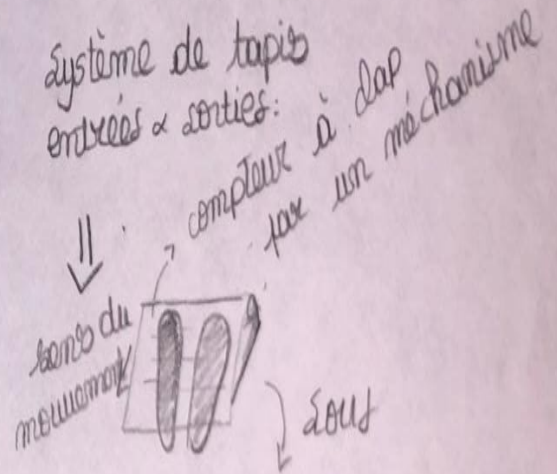 Système de tapis
entrées & sorties:
compteur à clap
par un méchanisme
sens du
mouvement
sous